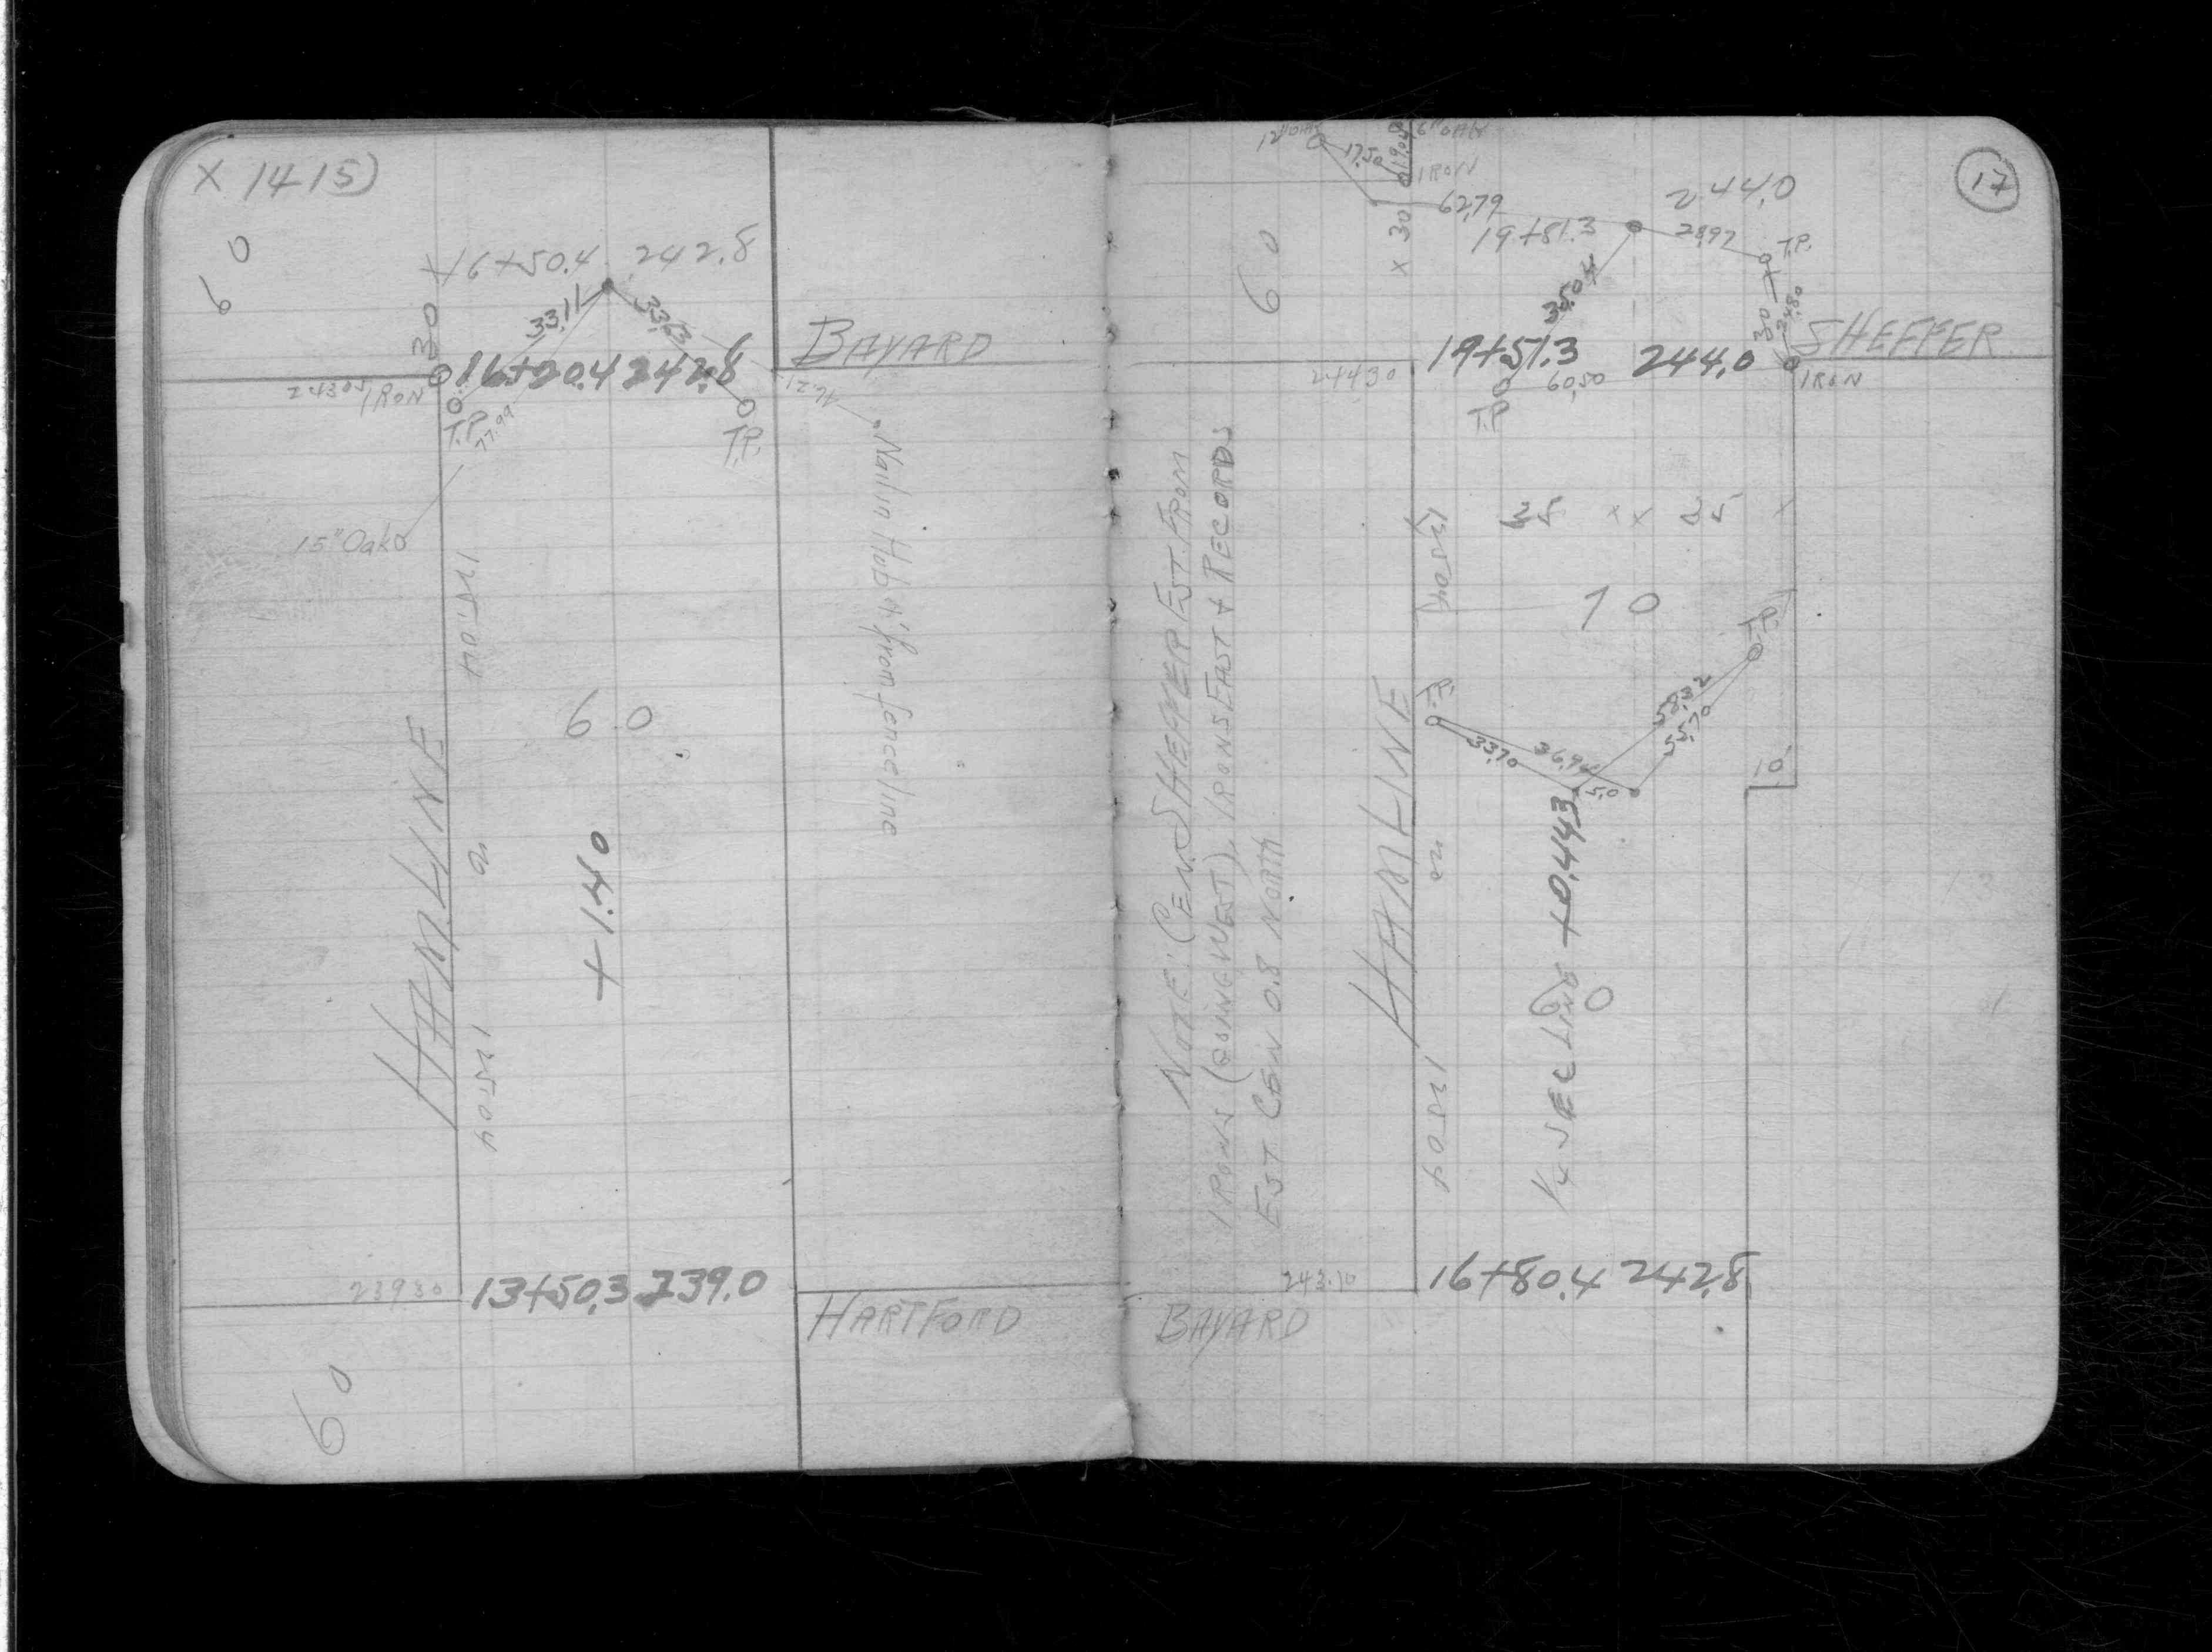 X 1415)
60
16+50.4 242.8
30
33.11
33.63
BAYARD
16+20.4 242.8
243.05
IRON
T.P.
77.99
T.P.
12.21
Nail in Hub 6' from fence line
15" Oak
125.04
HAMLINE
60
+1.40
125.04
239.30
13+50.3 239.0
HARTFORD
60
17
12" OAK
17.50
19.04
6" OAK
IRON
62.79
244.0
30
19+81.3
28.97
T.P.
60
35.04
30
24.80
SHEFFER
19+51.3 244.0
244.30
60.50
IRON
T.P.
NOTE: CEN. SHEFFER EST. FROM
IRONS (GOING WEST), IRONS EAST + RECORDS
EST CEN 0.8 NORTH
35 35
125.04
70
T.P.
T.P.
58.32
55.70
33.70
36.94
5.0
10
HAMLINE
1/4 SEC LINE +0.443
60
125.04
243.10
16+80.4 242.8
BAYARD